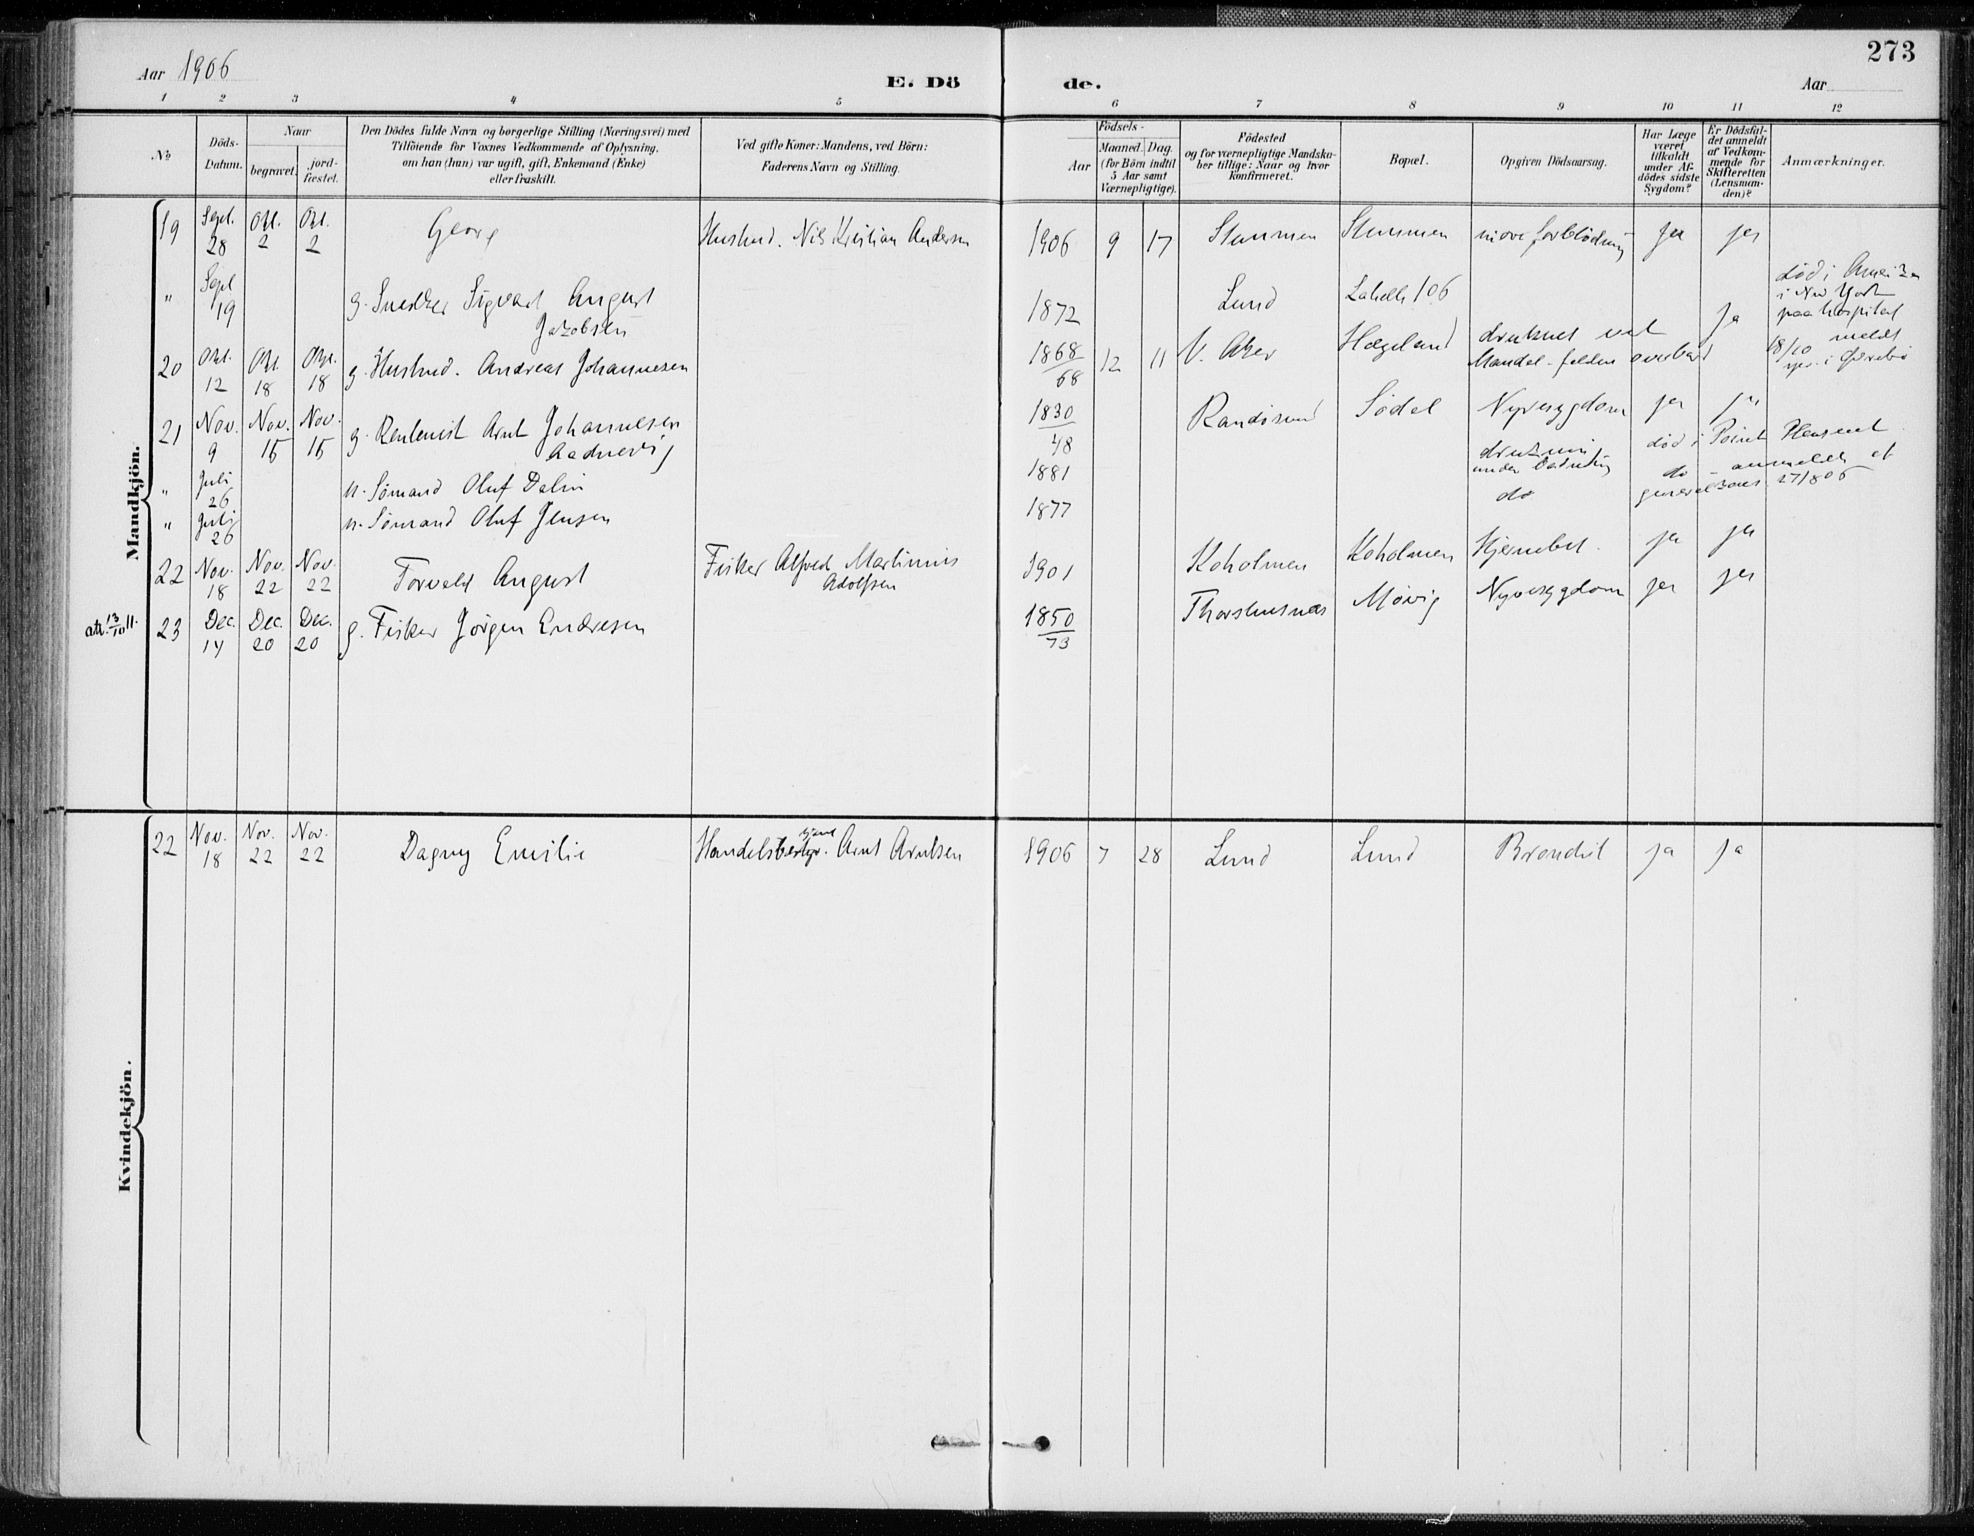 Aar 1906
E. Dö de.
Aar
273
1 2 3 4 5 6 7 8 9 10 11 12
No
Döds-Datum.
Naar
begravet.
jord-fæstet.
Den Dödes fulde Navn og borgerlige Stilling (Næringsvei) med
Tilföiende for Voxnes Vedkommende af Oplysning,
om han (hun) var ugift, gift, Enkemand (Enke)
eller fraskilt.
Ved gifte Koner: Mandens, ved Börn:
Faderens Navn og Stilling.
Födsels-
Aar
Maaned. Dag.
(for Börn indtil
5 Aar samt
Værnepligtige).
Födested
og for værnepligtige Mandska-
ber tillige: Naar og hvor
Konfirmeret.
Bopæl.
Opgiven Dödsaarsag.
Har Læge
været
tilkaldt
under Af-
dödes sidste
Sygdom?
Er Dödsfal-
det anmeldt
af Vedkom-
mende for
Skifteretten
(Lensman-
den)?
Anmærkninger.
Mandkjön.
19 Sept. 28 Okt. 2 Okt. 2 Georg Husmd. Nils Kristian Andersen 1906 9 17 Stemmen Stemmen indre forblödning ja ja
" Sept 19 g. Snedker Sigvart August
Jakobsen 1872 Lund 106
død i Amerika
i New York
paa hospital
20 Okt. 12 Okt. 18 Okt. 18 g. Husmd. Andreas Johannesen 1868/68 12 11 V. Aker Hægeland druknet ved
Mandal - falden overbord ja 18/10 meldt
21 Nov. 9 Nov. 15 Nov. 15 g. Rentenist Arnt Johannesen
Aadnevig 1830/48 Randøsund Södal Nyresygdom ja ja
" Juli 26 u. Sömand Oluf Dalin 1881 drukning
under badning død i Point
" Juli 26 u. Sömand Oluf Jensen 1877 do do - anmeldt af
generalkons. 27/8 06
22 Nov. 18 Nov. 22 Nov. 22 Torvald August Fisker Alfred Martinius
Adolfsen 1901 Koholmen Koholmen Hjernebet. ja ja
att. 13/10 11. 23 Dec. 14 Dec. 20 Dec. 20 g. Fisker Jörgen Endresen 1850/73 Thorshusnæs Møvig Nyresygdom ja ja
Kvindekjön.
22 Nov. 18 Nov. 22 Nov. 22 Dagny Emilie Handelsbestyr. Arnt Arntsen 1906 7 28 Lund Lund Bronchit ja ja